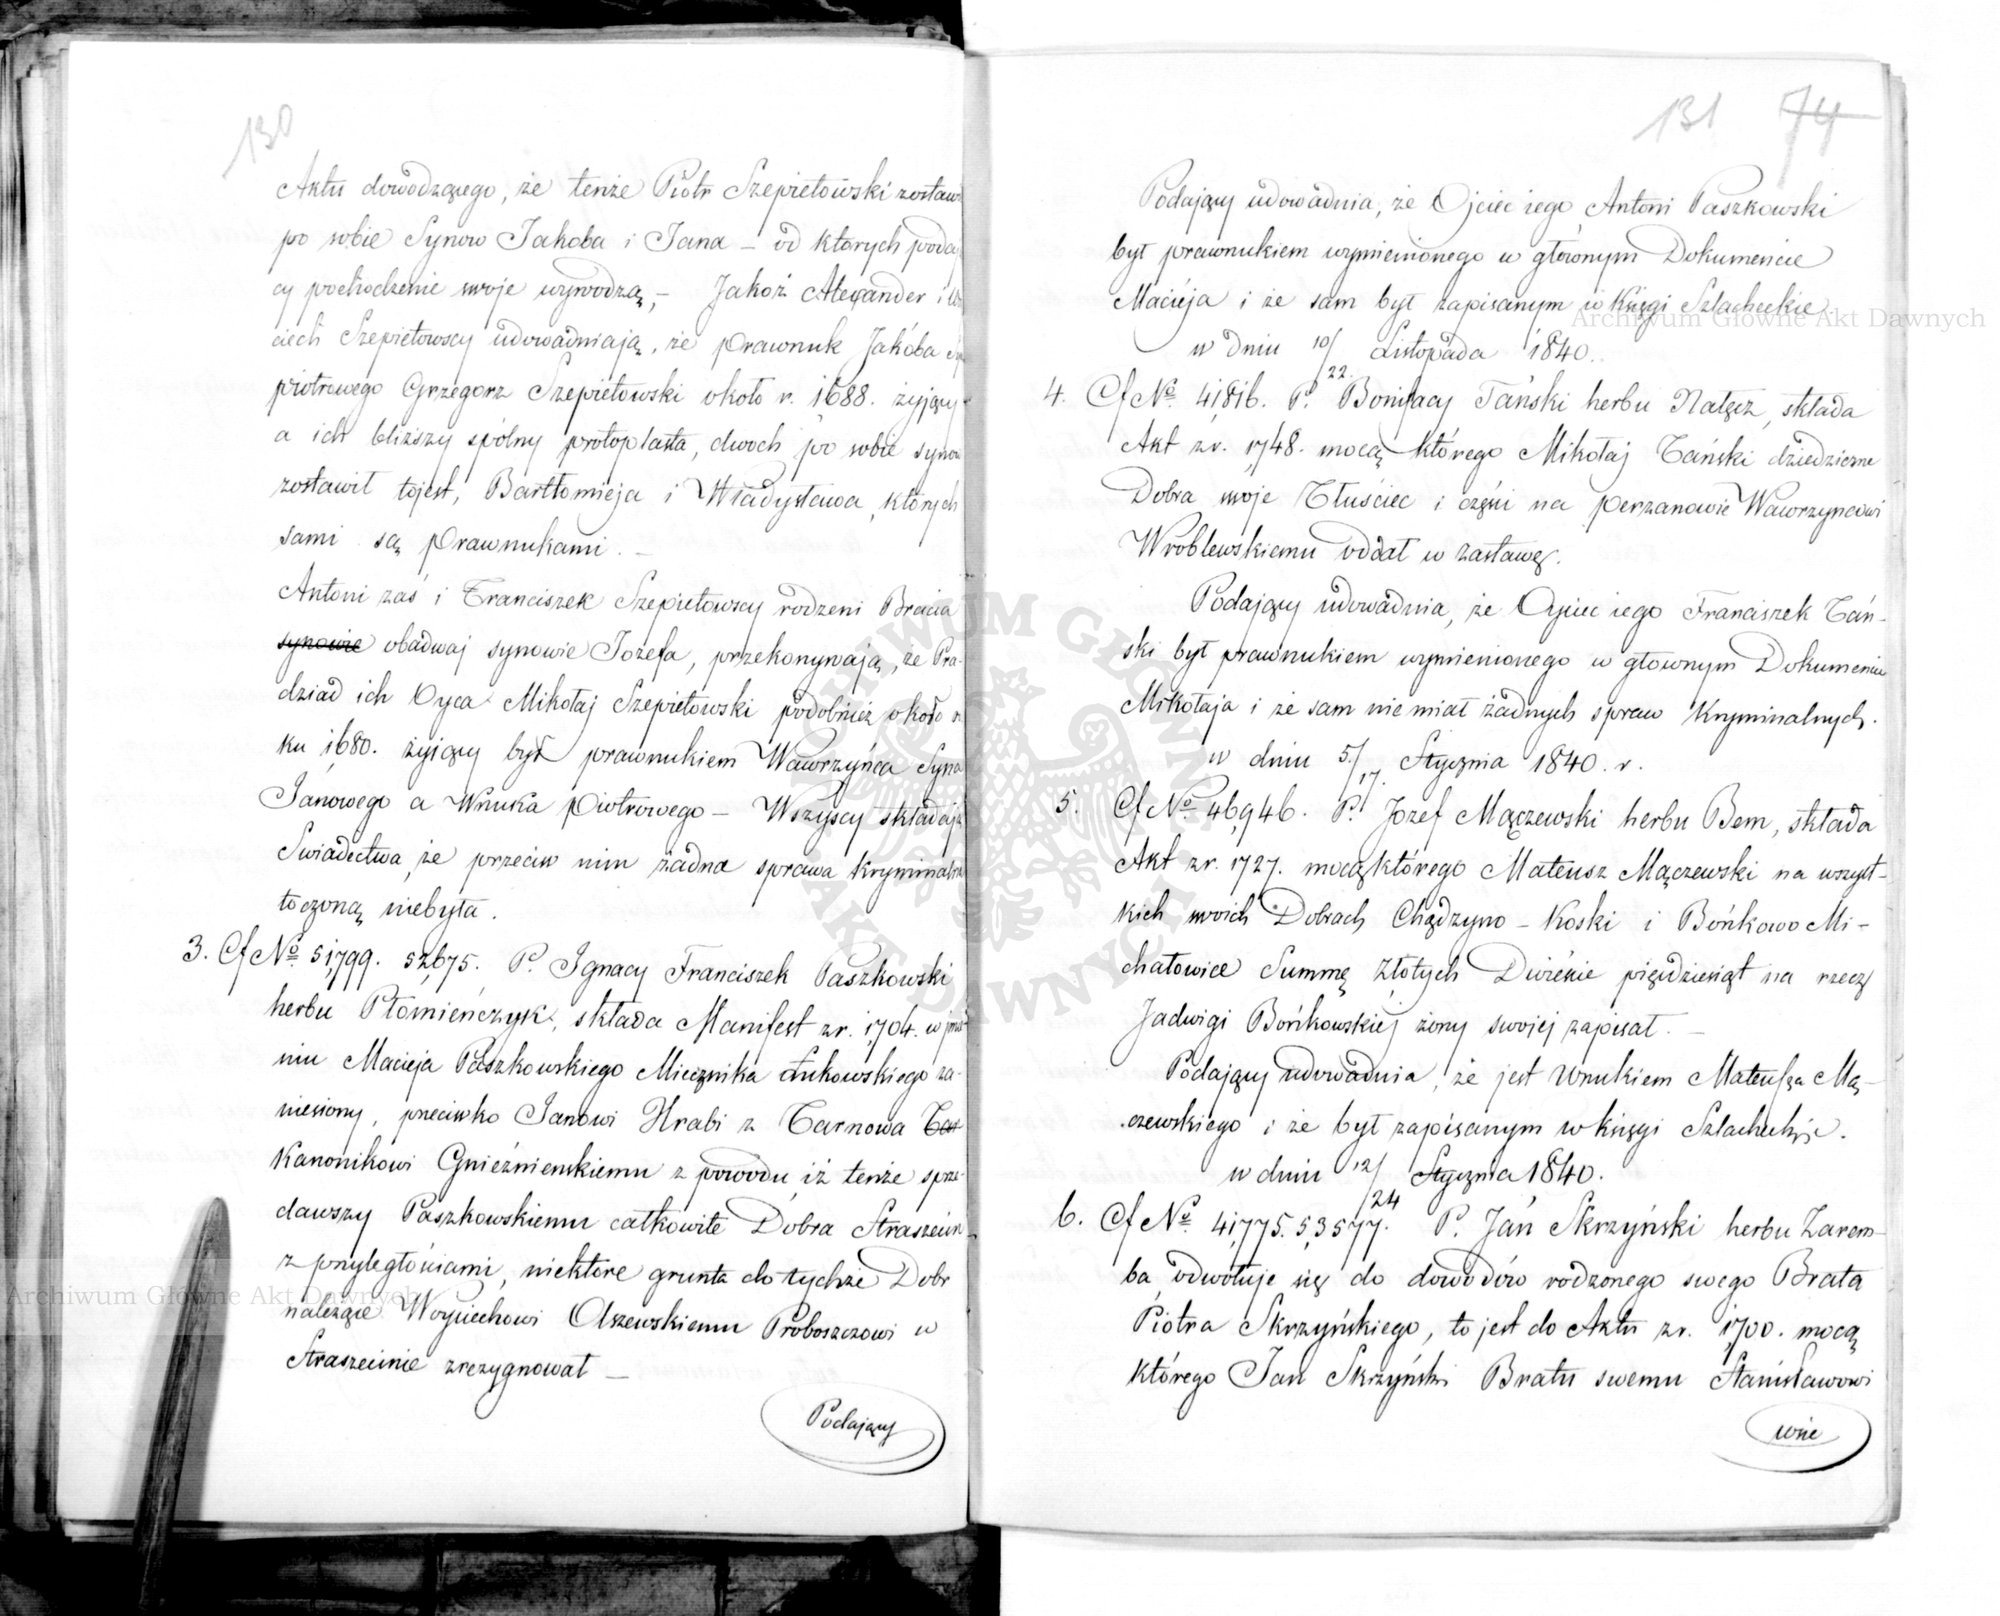 130
Aktu dowodzącego, że tenże Piotr Szepietowski zostaw
po sobie Synow Jakoba i Jana – od ktorych poda
cy pochodzenie swoje wywodzą, – Jakoż Alexander i
ciech Szepietowscy udowadniają, że prawnuk Jakóba
piotrowego Grzegorz Szepietowski około r. 1688. żyjący
a ich bliższy spólny protoplasta, dwoch po sobie synow
zostawił tojest, Bartłomieja i Władysława, ktorych
sami są prawnukami. –
Antoni zaś i Franciszek Szepietowscy rodzeni Bracia
synowie obadwaj synowie Jozefa, przekonywają, że Pra-
dziad ich Oyca Mikołaj Szepietowski podobnież około r
ku 1680. żyiący był prawnukiem Wawrzyńca Syna
Janowego a Wnuka Piotrowego – Wszyscy składają
Swiadectwa, że przeciw nim żadna sprawa kryminalna
toczoną niebyła.
3. Cf No. 51,799. 52,675. P. Ignacy Franciszek Paszkowski
herbu Płomieńczyk, składa Manifest zr. 1704. w
niu Macieja Paszkowskiego Miecznika Łukowskiego za-
niesiony, przeciwko Janowi Hrabi z Tarnowa Tar
Kanonikowi Gnieźnienskiemu z powodu iż tenże sprze-
dawszy Paszkowskiemu całkowite Dobra Straszecin
z przyległościami, niektóre grunta do tychże Dobr
należące Woyciechowi Olszewskiemu Proboszczowi w
Straszecinie zrezygnował –
Podający
131 74
Podający udowadnia, że Ojciec iego Antoni Paszkowski
był prawnukiem wymienionego w głównym Dokumencie
Macieja i że sam był zapisanym w Księgi Szlacheckie.
w dniu 10/22. Listopada 1840.
4. Cf No. 41816. P. Bonifacy Tański herbu Nałęcz, składa
Akt zr. 1748. mocą którego Mikołaj Tański dziedziczne
Dobra swoje Tłuściec i części na Perzanowie Wawrzyncowi
Wroblewskiemu oddał w zastawę.
Podający udowadnia, że Oyciec iego Franciszek Tań-
ski był prawnukiem wymienionego w głownym Dokumencie
Mikołaja i że sam nie miał żadnych spraw Kryminalnych.
w dniu 5/17. Stycznia 1840. r.
5. Cf No. 46,946. P. Jozef Mączewski herbu Bem, składa
Akt zr. 1727. mocą którego Mateusz Mączewski na wszyst-
kich swoich Dobrach Chądzyno – Koski i Bońkowo Mi-
chałowice Summę Złotych Dwieście pięćdziesiąt na rzecz
Jadwigi Bońkowskiej żony swojej zapisał. –
Podający udowadnia, że jest Wnukiem Mateusza Mą-
czewskiego i że był zapisanym w księgi Szlacheckie.
w dniu 12/24 Stycznia 1840.
6. Cf No. 41,775. 53577. P. Jań Skrzyński herbu Zarem-
ba, odwołuje się do dowodów rodzonego swego Brata
Piotra Skrzyńskiego, to jest do Aktu zr. 1700. mocą
którego Jan Skrzyński Bratu swemu Stanisławowi
wsie
Archiwum Główne Akt Dawnych
Archiwum Główne Akt Dawnych
ARCHIWUM GŁÓWNE
AKT DAWNYCH